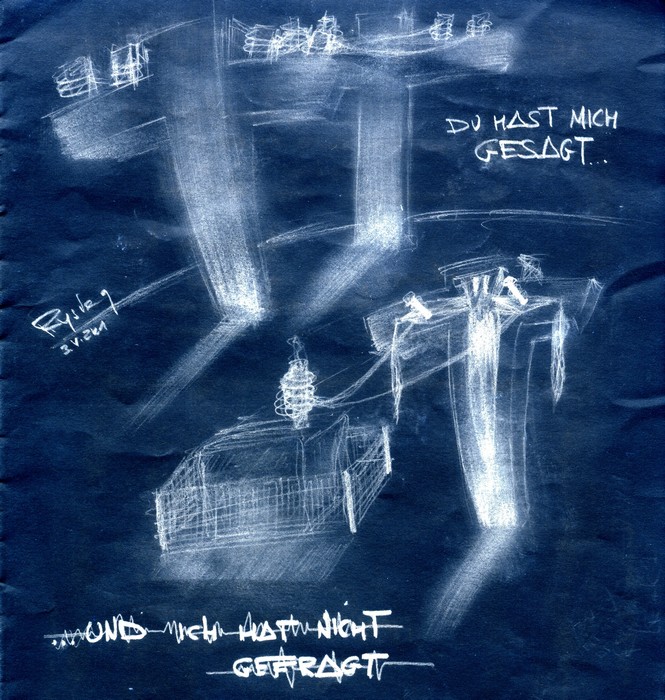 DU HAST MICH
GESAGT...
...UND MICH HAT NICHT
GEFRAGT